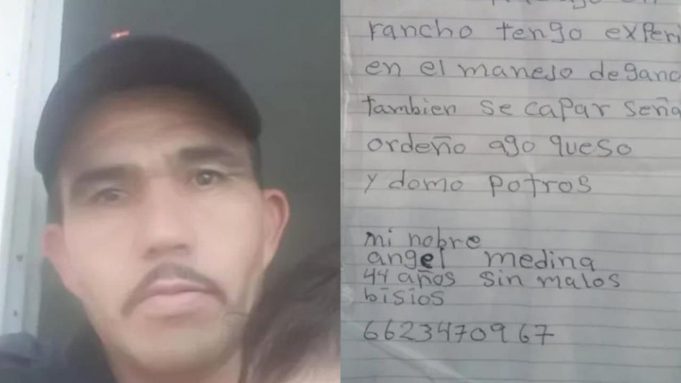 rancho tengo experi
en el manejo de gana
tambien se capar seña
ordeño ago queso
y domo potros
mi nobre
angel medina
44 años sin malos
bisios
6623470967